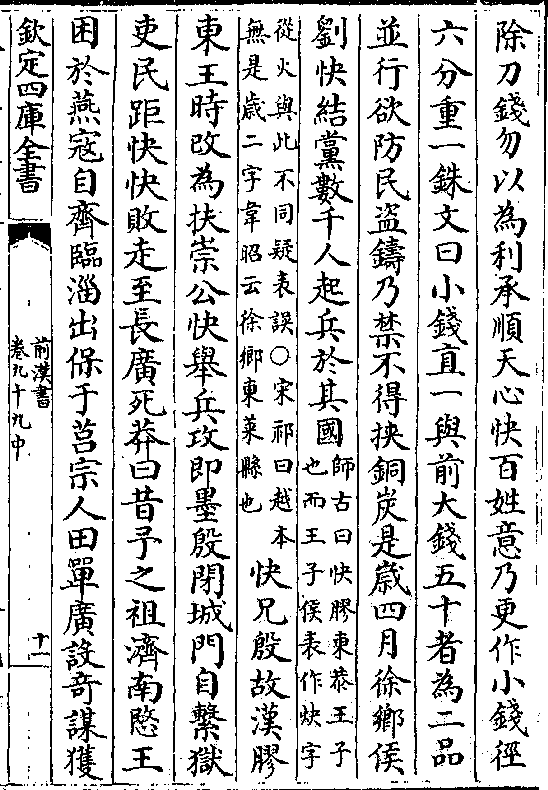 除刀錢勿以為利承順天心快百姓意乃更作小錢徑
六分重一銖文曰小錢直一與前大錢五十者為二品
並行欲防民盗鑄乃禁不得挾銅炭是歲四月徐鄉侯
劉快結黨數千人起兵於其國師古曰快膠東恭王子
也而王子侯表作炔字
從火與此不同疑表誤○宋祁曰越本
無是歲二字韋昭云徐鄉東萊縣也快兄殷故漢膠
東王時改為扶崇公快舉兵攻即墨殷閉城門自繫獄
吏民距快快敗走至長廣死莽曰昔予之祖濟南愍王
困於燕寇自齊臨淄出保于莒宗人田單廣設奇謀獲
欽定四庫全書
前漢書
卷九十九中
十一